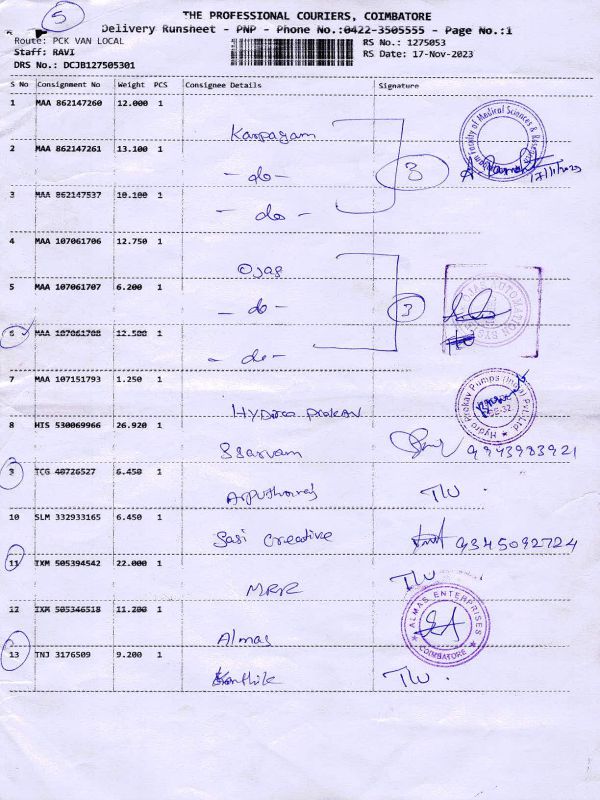 5
THE PROFESSIONAL COURIERS, COIMBATORE
Delivery Runsheet - PNP - Phone No.:0422-3505555 - Page No.:1
Route: PCK VAN LOCAL
RS No.: 1275053
Staff: RAVI
RS Date: 17-Nov-2023
DRS No.: DCJB127505301
S No Consignment No Weight PCS Consignee Details Signature
1 MAA 862147260 12.000 1 Karpagam
2 MAA 862147261 13.100 1 - do -
3
17/11/2023
3 MAA 862147537 10.100 1 - do -
4 MAA 107061706 12.750 1 Ojas
5 MAA 107061707 6.200 1 - do -
3
6 MAA 107061708 12.500 1 - do -
7 MAA 107151793 1.250 1 HYDRO PROKAV
Hydro Prokav Pumps (India) Pvt. Ltd.
8 HIS 530069966 26.920 1 Ssarvam 9343983921
9 TCG 40726527 6.450 1 TLU
10 SLM 332933165 6.450 1 Sasi Creative 9345092724
11 IXM 505394542 22.000 1 MRR TLU
12 IXM 505346518 11.200 1 Almas
ALMAS ENTERPRISES
COIMBATORE
13 TNJ 3176509 9.200 1 Karthik TLU